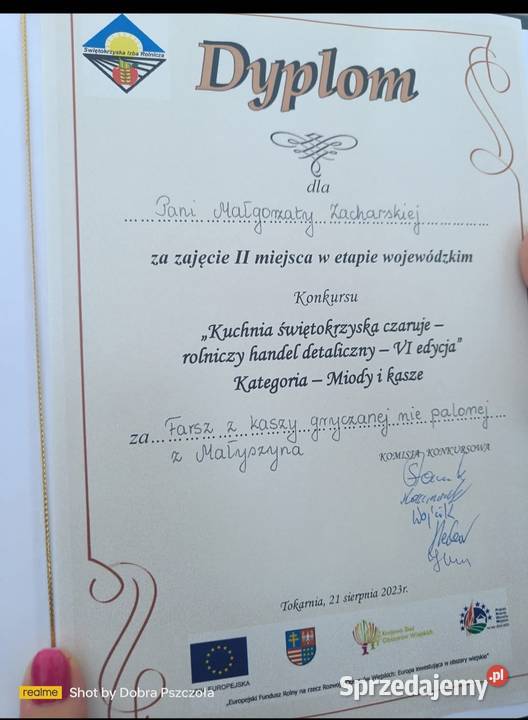 Świętokrzyska Izba Rolnicza
Dyplom
dla
Pani Małgorzaty Zacharskiej
za zajęcie II miejsca w etapie wojewódzkim
Konkursu
„Kuchnia świętokrzyska czaruje –
rolniczy handel detaliczny – VI edycja”
Kategoria – Miody i kasze
za Farsz z kaszy gryczanej nie palonej
z Małyszyna
KOMISJA KONKURSOWA
Wójcik
Tokarnia, 21 sierpnia 2023r.
Krajowa Sieć
Obszarów Wiejskich
EUROPEJSKA
„Europejski Fundusz Rolny na rzecz Rozwoju Wiejskich: Europa inwestująca w obszary wiejskie”
realme Shot by Dobra Pszczoła
Sprzedajemy.pl